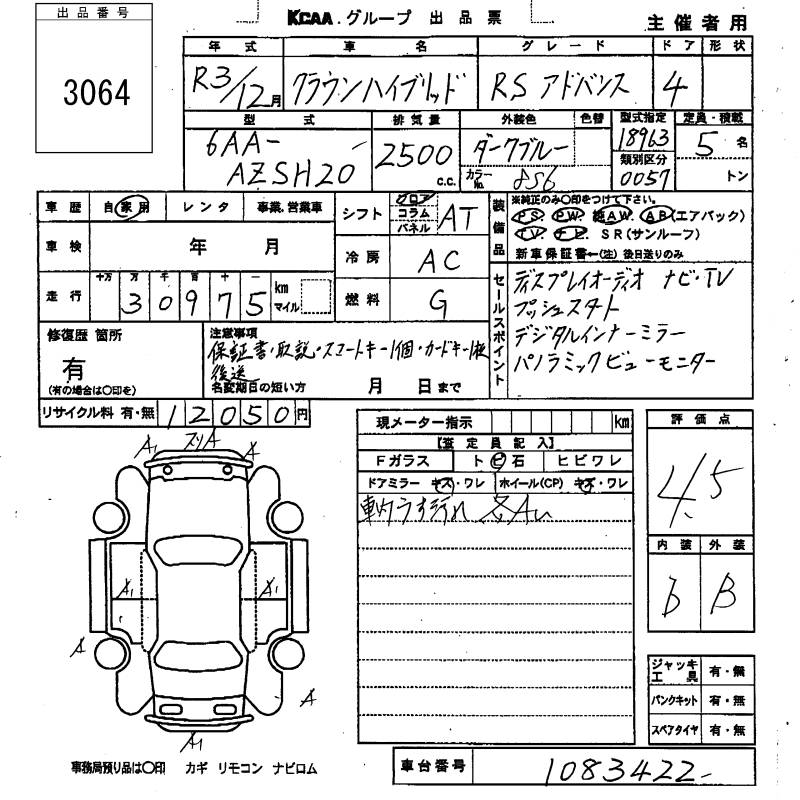 出品番号
3064
KCAA.グループ 出品票
主催者用
年式 車名 グレード ドア 形状
R3/12月 クラウンハイブリッド RS アドバンス 4
型式 排気量 外装色 色替 型式指定 定員・積載
6AA-
AZSH20
2500 c.c.
ダークブルー
カラーNo. 8S6
18963
類別区分
0057
5 名
トン
車歴 自家用 レンタ 事業、営業車
シフト フロア コラム パネル AT
車検 年 月
冷房 AC
走行 十万 万 千 百 十 一
30975 km マイル
燃料 G
装備品
※純正のみ○印をつけて下さい。
PS PW 純AW AB(エアバック)
TV ナビ SR(サンルーフ)
新車保証書←(注) 後日送りのみ
セールスポイント
ディスプレイオーディオ ナビ・TV
プッシュスタート
デジタルインナーミラー
パノラミックビューモニター
修復歴 箇所
有
(有の場合は○印を)
注意事項
保証書・取説・スマートキー1個・カードキー1枚
後送
名変期日の短い方 月 日まで
リサイクル料 有・無 12050円
現メーター指示 km
【査定員記入】
Fガラス トビ石 ヒビワレ
ドアミラー キズ・ワレ ホイール(CP) キズ・ワレ
車内うす汚れ 各A
評価点
4.5
内装 外装
B B
A1 スリA A
A1 A1
A
A
A1
ジャッキ
工具 有・無
パンクキット 有・無
スペアタイヤ 有・無
事務局預り品は○印 カギ リモコン ナビロム
車台番号 1083422